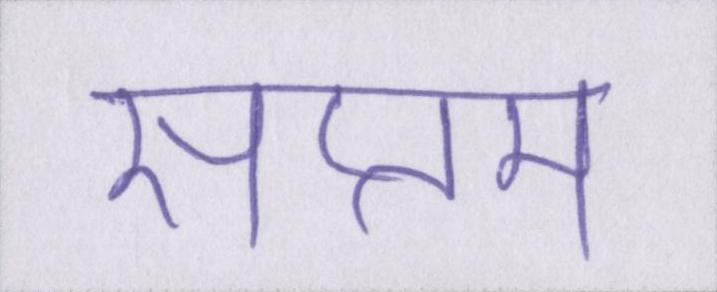 सप्तम